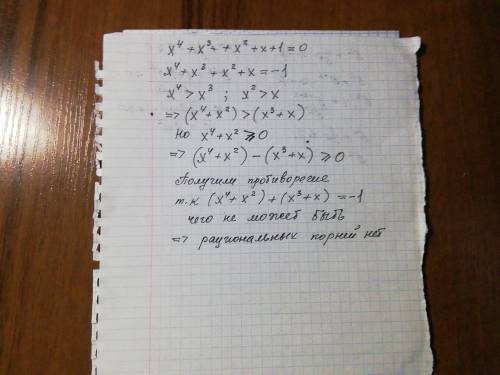 x⁴ + x³ + + x² + x + 1 = 0
x⁴ + x³ + x² + x = -1
x⁴ > x³ ; x² > x
=> (x⁴ + x²) > (x³ + x)
Но x⁴ + x² ⩾ 0
=> (x⁴ + x²) - (x³ + x) ⩾ 0
Получили противоречие
т.к (x⁴ + x²) + (x³ + x) = -1
чего не может быть
=> рациональных корней нет